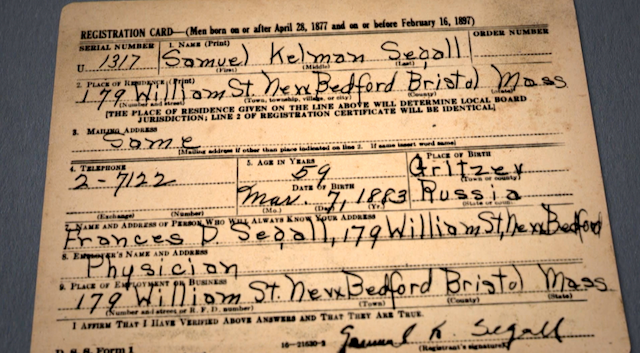 REGISTRATION CARD—(Men born on or after April 28, 1877 and on or before February 16, 1897)
SERIAL NUMBER 1. NAME (Print) ORDER NUMBER
U 1317 Samuel Kelman Segall
(First) (Middle) (Last)
2. PLACE OF RESIDENCE (Print)
179 William St. New Bedford Bristol Mass
(Number and street) (Town, township, village, or city) (County) (State)
[THE PLACE OF RESIDENCE GIVEN ON THE LINE ABOVE WILL DETERMINE LOCAL BOARD
JURISDICTION; LINE 2 OF REGISTRATION CERTIFICATE WILL BE IDENTICAL]
3. MAILING ADDRESS
Same
[Mailing address if other than place indicated on line 2. If same insert word same]
4. TELEPHONE 5. AGE IN YEARS 6. PLACE OF BIRTH
2-7122 59 Gritzev
DATE OF BIRTH (Town or county)
Mar. 7, 1883 Russia
(Exchange) (Number) (Mo.) (Day) (Yr.) (State or country)
7. NAME AND ADDRESS OF PERSON WHO WILL ALWAYS KNOW YOUR ADDRESS
Frances D. Segall, 179 William St, New Bedford
8. EMPLOYER'S NAME AND ADDRESS
Physician
9. PLACE OF EMPLOYMENT OR BUSINESS
179 William St. New Bedford Bristol Mass
(Number and street or R. F. D. number) (Town) (County) (State)
I AFFIRM THAT I HAVE VERIFIED ABOVE ANSWERS AND THAT THEY ARE TRUE.
Samuel K. Segall
D. S. S. Form 1 16—21630-2 (Registrant's signature)